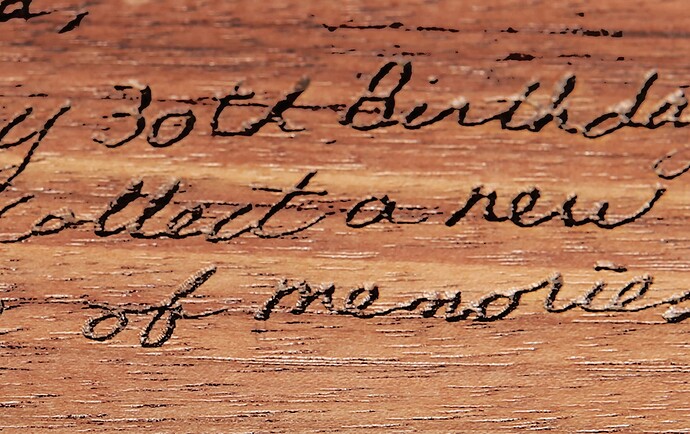 y 30th Birthday
Collect a new
of memories